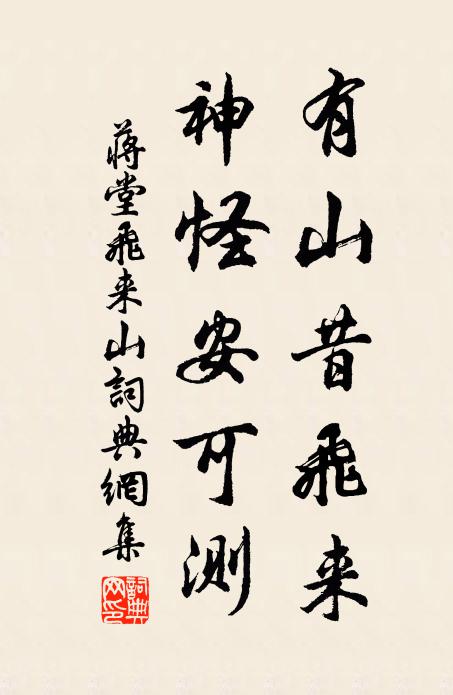 有山昔飛来
神怪安可測
蔣堂飛来山詞典網集
詞典网印